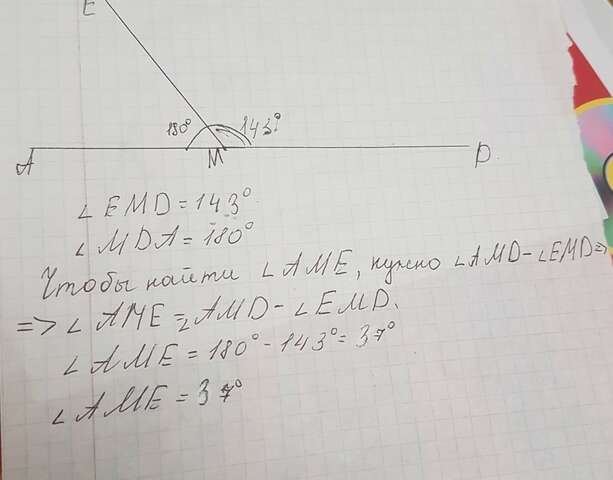 E
180° 143°
A M D
∠ EMD = 143°
∠ MDA = 180°
Чтобы найти ∠ AME, нужно ∠ AMD - ∠ EMD =>
=> ∠ AME = ∠ AMD - ∠ EMD.
∠ AME = 180° - 143° = 37°
∠ AME = 37°